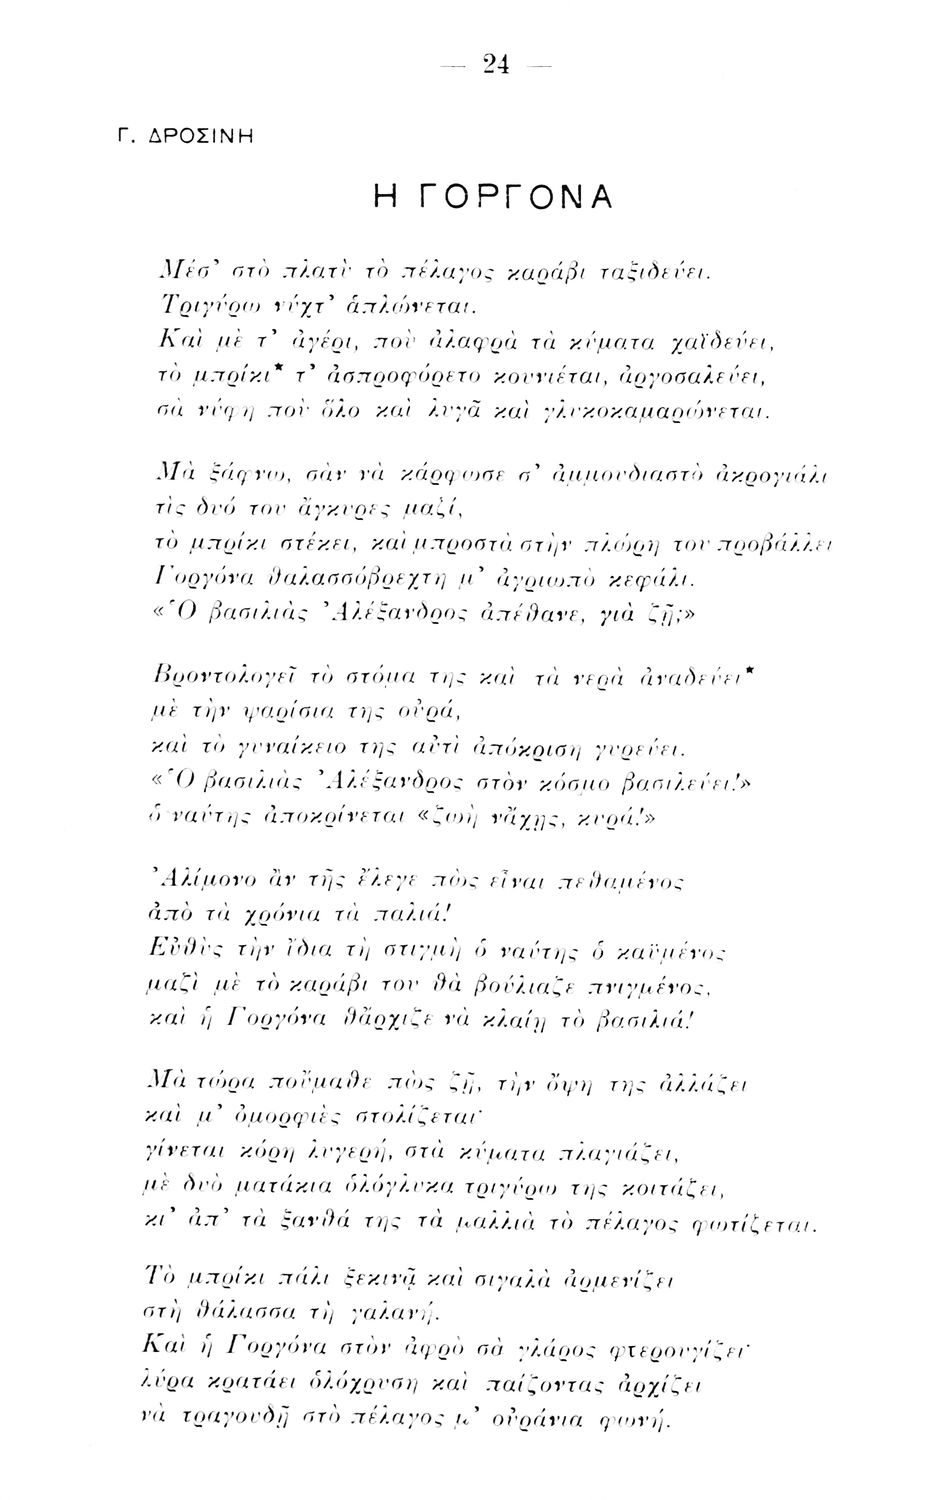 — 24 —
Γ. ΔΡΟΣΙΝΗ
Η ΓΟΡΓΟΝΑ
Μέσ’ στὸ πλατὺ τὸ πέλαγος καράβι ταξιδεύει.
Τριγύρω νύχτ’ ἁπλώνεται.
Καὶ μὲ τ’ ἀγέρι, ποὺ ἀλαφρὰ τὰ κύματα χαϊδεύει,
τὸ μπρίκι* τ’ ἀσπροφόρετο κουνιέται, ἀργοσαλεύει,
σὰ νύφη ποὺ ὅλο καὶ λυγᾶ καὶ γλυκοκαμαρώνεται.
Μὰ ξάφνω, σὰν νὰ κάρφωσε σ’ ἀμμουδιαστὸ ἀκρογιάλι
τὶς δυό του ἄγκυρες μαζί,
τὸ μπρίκι στέκει, καὶ μπροστὰ στὴν πλώρη του προβάλλει
Γοργόνα θαλασσόβρεχτη μ’ ἀγριωπὸ κεφάλι.
«Ὁ βασιλιὰς Ἀλέξανδρος ἀπέθανε, γιὰ ζῆ;»
Βροντολογεῖ τὸ στόμα της καὶ τὰ νερὰ ἀναδεύει*
μὲ τὴν ψαρίσια της οὐρά,
καὶ τὸ γυναίκειο της αὐτὶ ἀπόκριση γυρεύει.
«Ὁ βασιλιὰς Ἀλέξανδρος στὸν κόσμο βασιλεύει!»
ὁ ναύτης ἀποκρίνεται «ζωὴ νἄχῃς, κυρά!»
Ἀλίμονο ἂν τῆς ἔλεγε πὼς εἶναι πεθαμένος
ἀπὸ τὰ χρόνια τὰ παλιά!
Εὐθὺς τὴν ἴδια τὴ στιγμὴ ὁ ναύτης ὁ καϋμένος
μαζὶ μὲ τὸ καράβι του θὰ βούλιαζε πνιγμένος,
καὶ ἡ Γοργόνα θἄρχιζε νὰ κλαίῃ τὸ βασιλιά!
Μὰ τώρα ποὔμαθε πὼς ζῆ, τὴν ὄψη της ἀλλάζει
καὶ μ’ ὀμορφιὲς στολίζεται·
γίνεται κόρη λυγερή, στὰ κύματα πλαγιάζει,
μὲ δυὸ ματάκια ὁλόγλυκα τριγύρω της κοιτάζει,
κι’ ἀπ’ τὰ ξανθά της τὰ μαλλιὰ τὸ πέλαγος φωτίζεται.
Τὸ μπρίκι πάλι ξεκινᾷ καὶ σιγαλὰ ἀρμενίζει
στὴ θάλασσα τὴ γαλανή.
Καὶ ἡ Γοργόνα στὸν ἀφρὸ σὰ γλάρος φτερουγίζει·
λύρα κρατάει ὁλόχρυση καὶ παίζοντας ἀρχίζει
νὰ τραγουδῇ στὸ πέλαγος μ’ οὐράνια φωνή.